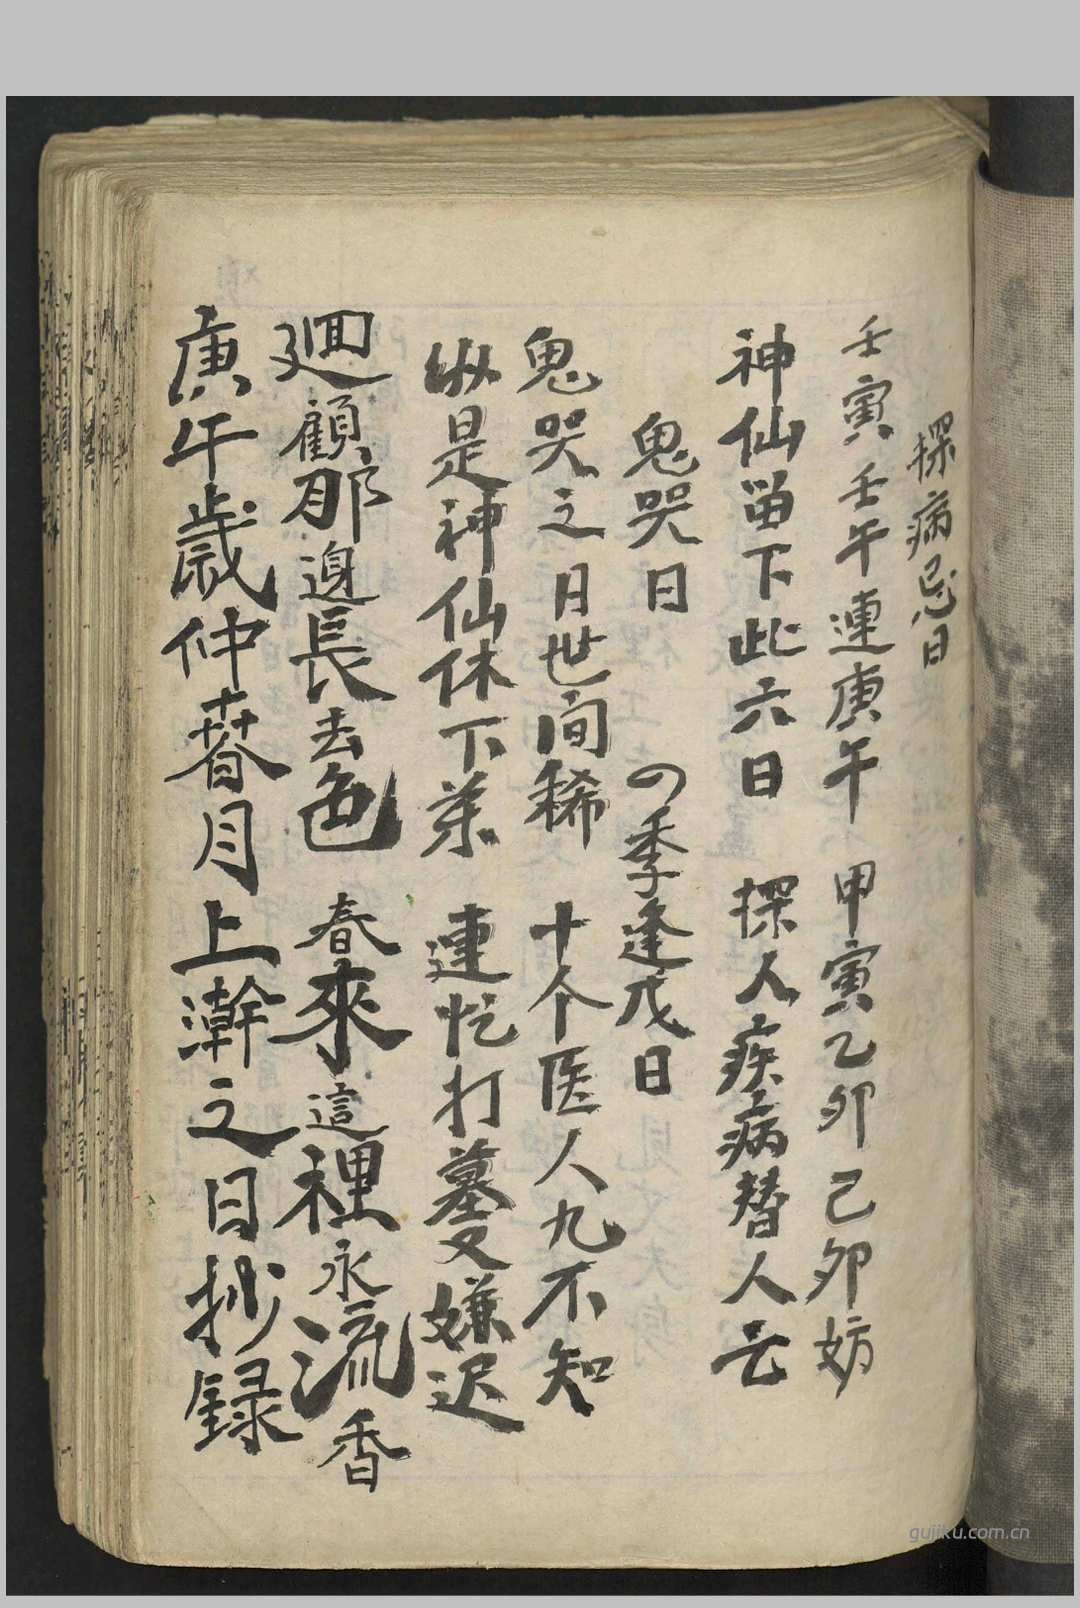 探病忌日
壬寅壬午連庚午 甲寅乙卯己卯妨
神仙留下此六日 探人疾病替人亡
鬼哭日 四季逢戊日
鬼哭之日世间稀 十个医人九不知
纵是神仙休下药 連忙打墓又嫌迟
廻顧那邊長去色 春來這裡永流香
庚午歲仲春月上澣之日抄録
gujiku.com.cn